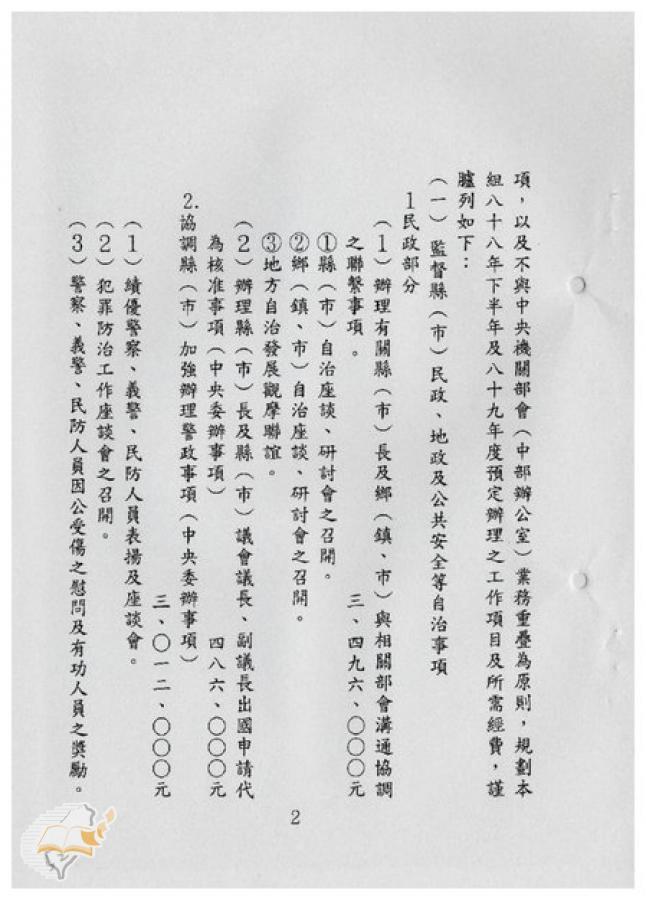 項，以及不與中央機關部會（中部辦公室）業務重疊為原則，規劃本
組八十八年下半年及八十九年度預定辦理之工作項目及所需經費，謹
臚列如下：
（一）監督縣（市）民政、地政及公共安全等自治事項
1民政部分
（1）辦理有關縣（市）長及鄉（鎮、市）與相關部會溝通協調
之聯繫事項。
三、四九六、〇〇〇元
①縣（市）自治座談、研討會之召開。
②鄉（鎮、市）自治座談、研討會之召開。
③地方自治發展觀摩聯誼。
（2）辦理縣（市）長及縣（市）議會議長、副議長出國申請代
為核准事項（中央委辦事項）
四八六、〇〇〇元
2.協調縣（市）加強辦理警政事項（中央委辦事項）
三、〇一二、〇〇〇元
（1）績優警察、義警、民防人員表揚及座談會。
（2）犯罪防治工作座談會之召開。
（3）警察、義警、民防人員因公受傷之慰問及有功人員之獎勵。
2